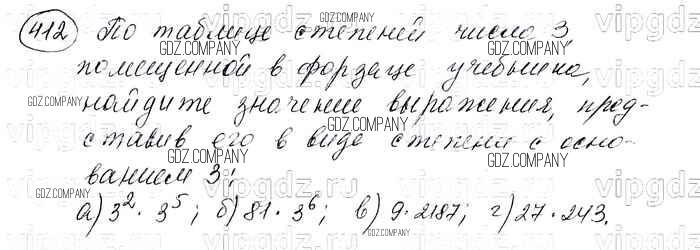 412 По таблице степеней числа 3,
помещенной в форзаце учебника,
найдите значение выражения, пред-
ставив его в виде степени с осно-
ванием 3:
а) 3² · 3⁵; б) 81 · 3⁶; в) 9 · 2187; г) 27 · 243.
GDZ.COMPANY
GDZ.COMPANY
GDZ.COMPANY
GDZ.COMPANY
GDZ.COMPANY
GDZ.COMPANY
GDZ.COMPANY
GDZ.COMPANY
GDZ.COMPANY
GDZ.COMPANY
vipgdz.ru